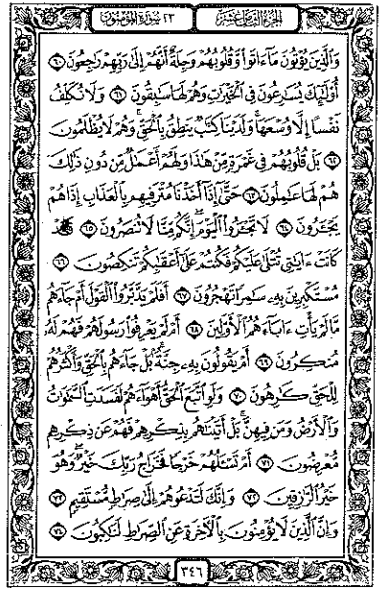 الجزء الثامن عشر
٢٣ سورة المؤمنون
وَالَّذِينَ يُؤْتُونَ مَا ءَاتَوا وَّقُلُوبُهُمْ وَجِلَةٌ أَنَّهُمْ إِلَىٰ رَبِّهِمْ رَاجِعُونَ ٦٠
أُوْلَٰئِكَ يُسَارِعُونَ فِي الْخَيْرَاتِ وَهُمْ لَهَا سَابِقُونَ ٦١ وَلَا نُكَلِّفُ
نَفْسًا إِلَّا وُسْعَهَا وَلَدَيْنَا كِتَابٌ يَنطِقُ بِالْحَقِّ وَهُمْ لَا يُظْلَمُونَ
٦٢ بَلْ قُلُوبُهُمْ فِي غَمْرَةٍ مِّنْ هَٰذَا وَلَهُمْ أَعْمَالٌ مِّن دُونِ ذَٰلِكَ
هُمْ لَهَا عَامِلُونَ ٦٣ حَتَّىٰ إِذَا أَخَذْنَا مُتْرَفِيهِم بِالْعَذَابِ إِذَا هُمْ
يَجْأَرُونَ ٦٤ لَا تَجْأَرُوا الْيَوْمَ إِنَّكُم مِّنَّا لَا تُنصَرُونَ ٦٥ قَدْ
كَانَتْ ءَايَاتِي تُتْلَىٰ عَلَيْكُمْ فَكُنتُمْ عَلَىٰ أَعْقَابِكُمْ تَنكِصُونَ ٦٦
مُسْتَكْبِرِينَ بِهِ سَامِرًا تَهْجُرُونَ ٦٧ أَفَلَمْ يَدَّبَّرُوا الْقَوْلَ أَمْ جَاءَهُم
مَّا لَمْ يَأْتِ ءَابَاءَهُمُ الْأَوَّلِينَ ٦٨ أَمْ لَمْ يَعْرِفُوا رَسُولَهُمْ فَهُمْ لَهُ
مُنكِرُونَ ٦٩ أَمْ يَقُولُونَ بِهِ جِنَّةٌ بَلْ جَاءَهُم بِالْحَقِّ وَأَكْثَرُهُمْ
لِلْحَقِّ كَارِهُونَ ٧٠ وَلَوِ اتَّبَعَ الْحَقُّ أَهْوَاءَهُمْ لَفَسَدَتِ السَّمَاوَاتُ
وَالْأَرْضُ وَمَن فِيهِنَّ بَلْ أَتَيْنَاهُم بِذِكْرِهِمْ فَهُمْ عَن ذِكْرِهِم
مُّعْرِضُونَ ٧١ أَمْ تَسْأَلُهُمْ خَرْجًا فَخَرَاجُ رَبِّكَ خَيْرٌ وَهُوَ
خَيْرُ الرَّازِقِينَ ٧٢ وَإِنَّكَ لَتَدْعُوهُمْ إِلَىٰ صِرَاطٍ مُّسْتَقِيمٍ ٧٣
وَإِنَّ الَّذِينَ لَا يُؤْمِنُونَ بِالْآخِرَةِ عَنِ الصِّرَاطِ لَنَاكِبُونَ ٧٤
٣٤٦